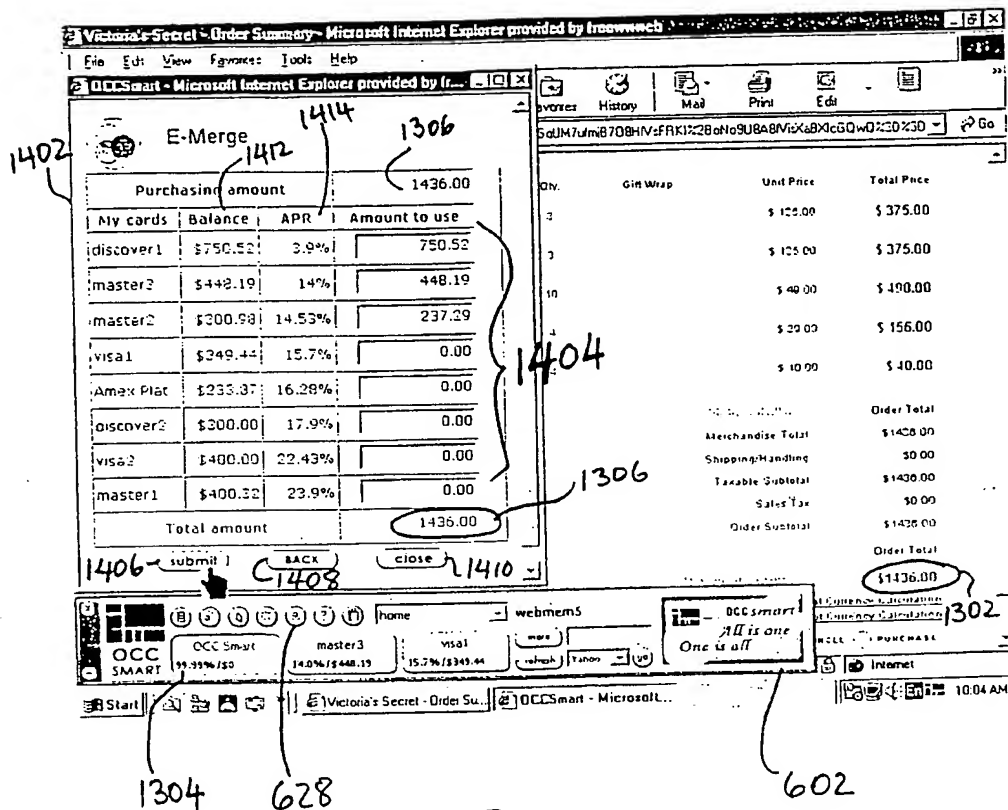 Victoria's Secret - Order Summary - Microsoft Internet Explorer provided by freewwweb
File Edit View Favorites Tools Help
OCCSmart - Microsoft Internet Explorer provided by fr...
History Mail Print Edit
Go
E-Merge
1402
1412
1414
1306
Purchasing amount 1436.00
My cards Balance APR Amount to use
discover1 $750.52 3.9% 750.52
master3 $448.19 14% 448.19
master2 $300.98 14.53% 237.29
visa1 $349.44 15.7% 0.00
Amex Plat 16.28% 0.00
discover2 $300.00 17.9% 0.00
visa2 $400.00 22.43% 0.00
master1 $400.32 23.9% 0.00
Total amount 1436.00
1404
1306
submit BACK close
1406 1408 1410
Qty. Gift Wrap Unit Price Total Price
3 $ 125.00 $ 375.00
3 $ 125.00 $ 375.00
10 $ 49.00 $ 490.00
$ 156.00
$ 10.00 $ 40.00
Order Total
Merchandise Total $1436.00
Shipping/Handling $0.00
Taxable Subtotal $1436.00
Sales Tax $0.00
Order Subtotal $1436.00
Order Total
$1436.00
1302
Currency Calculation
Currency Calculation
PURCHASE
OCC SMART
home webmem5
OCC Smart 99.99%/$0
master3 14.0%/$448.19
visa1 15.7%/$349.44
more
refresh Yahoo go
OCC smart
All is one
One is all
Internet
Start Victoria's Secret - Order Su... OCCSmart - Microsoft... 10:04 AM
1304 628 602